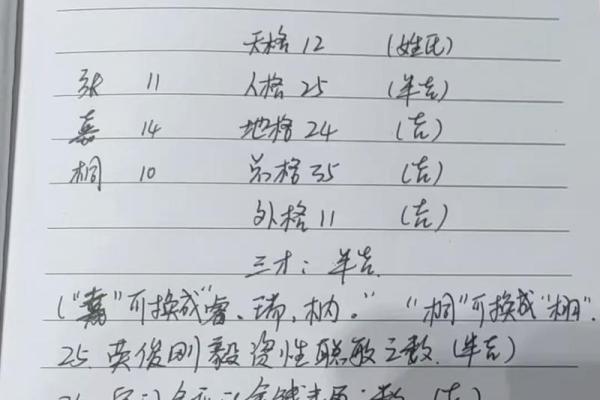 天格 12 (姓氏)
张 11 人格 25 (半吉)
嘉 14 地格 24 (吉)
桐 10 总格 35 (吉)
外格 11 (吉)
三才: 半吉.
("嘉"可换成"睿、瑞、枘。" "桐"可换成"栩".
25. 英俊刚毅资性聪敏之数. (半吉)